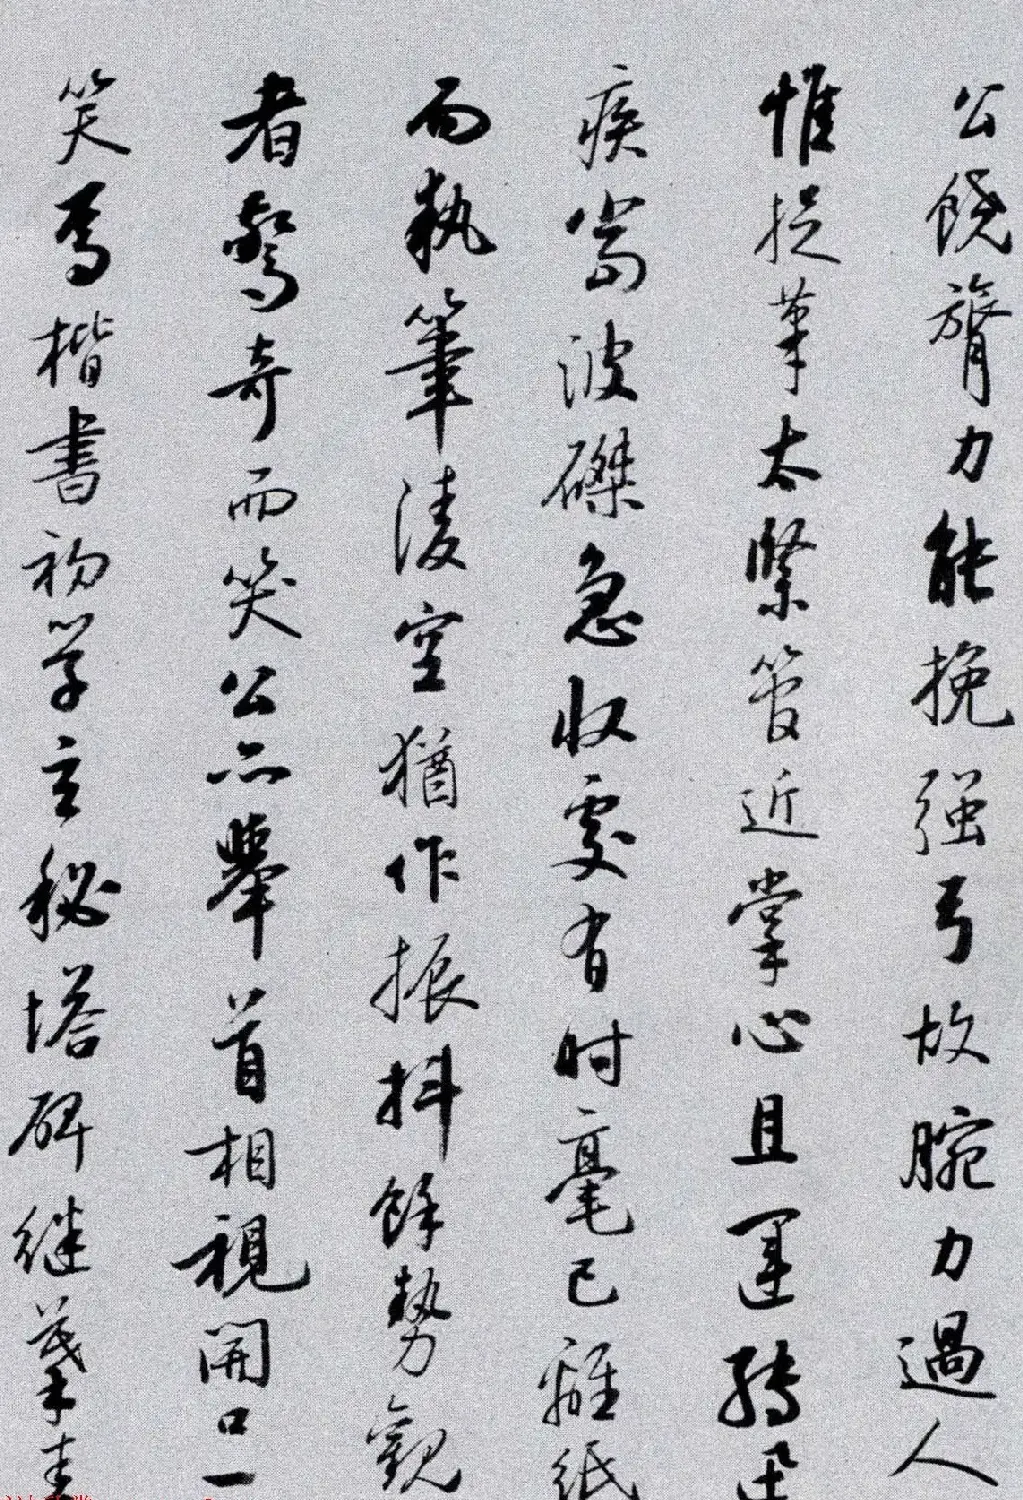 公饒膂力能挽强弓故腕力過人
惟捉筆太緊管近掌心且運轉迅
疾當波磔急收處有时毫已離紙
而執筆凌空猶作振抖餘勢觀
者驚奇而笑公亦舉首相視開口一
笑焉楷書初学玄秘塔碑继摹